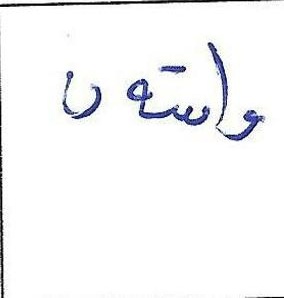 واستەن